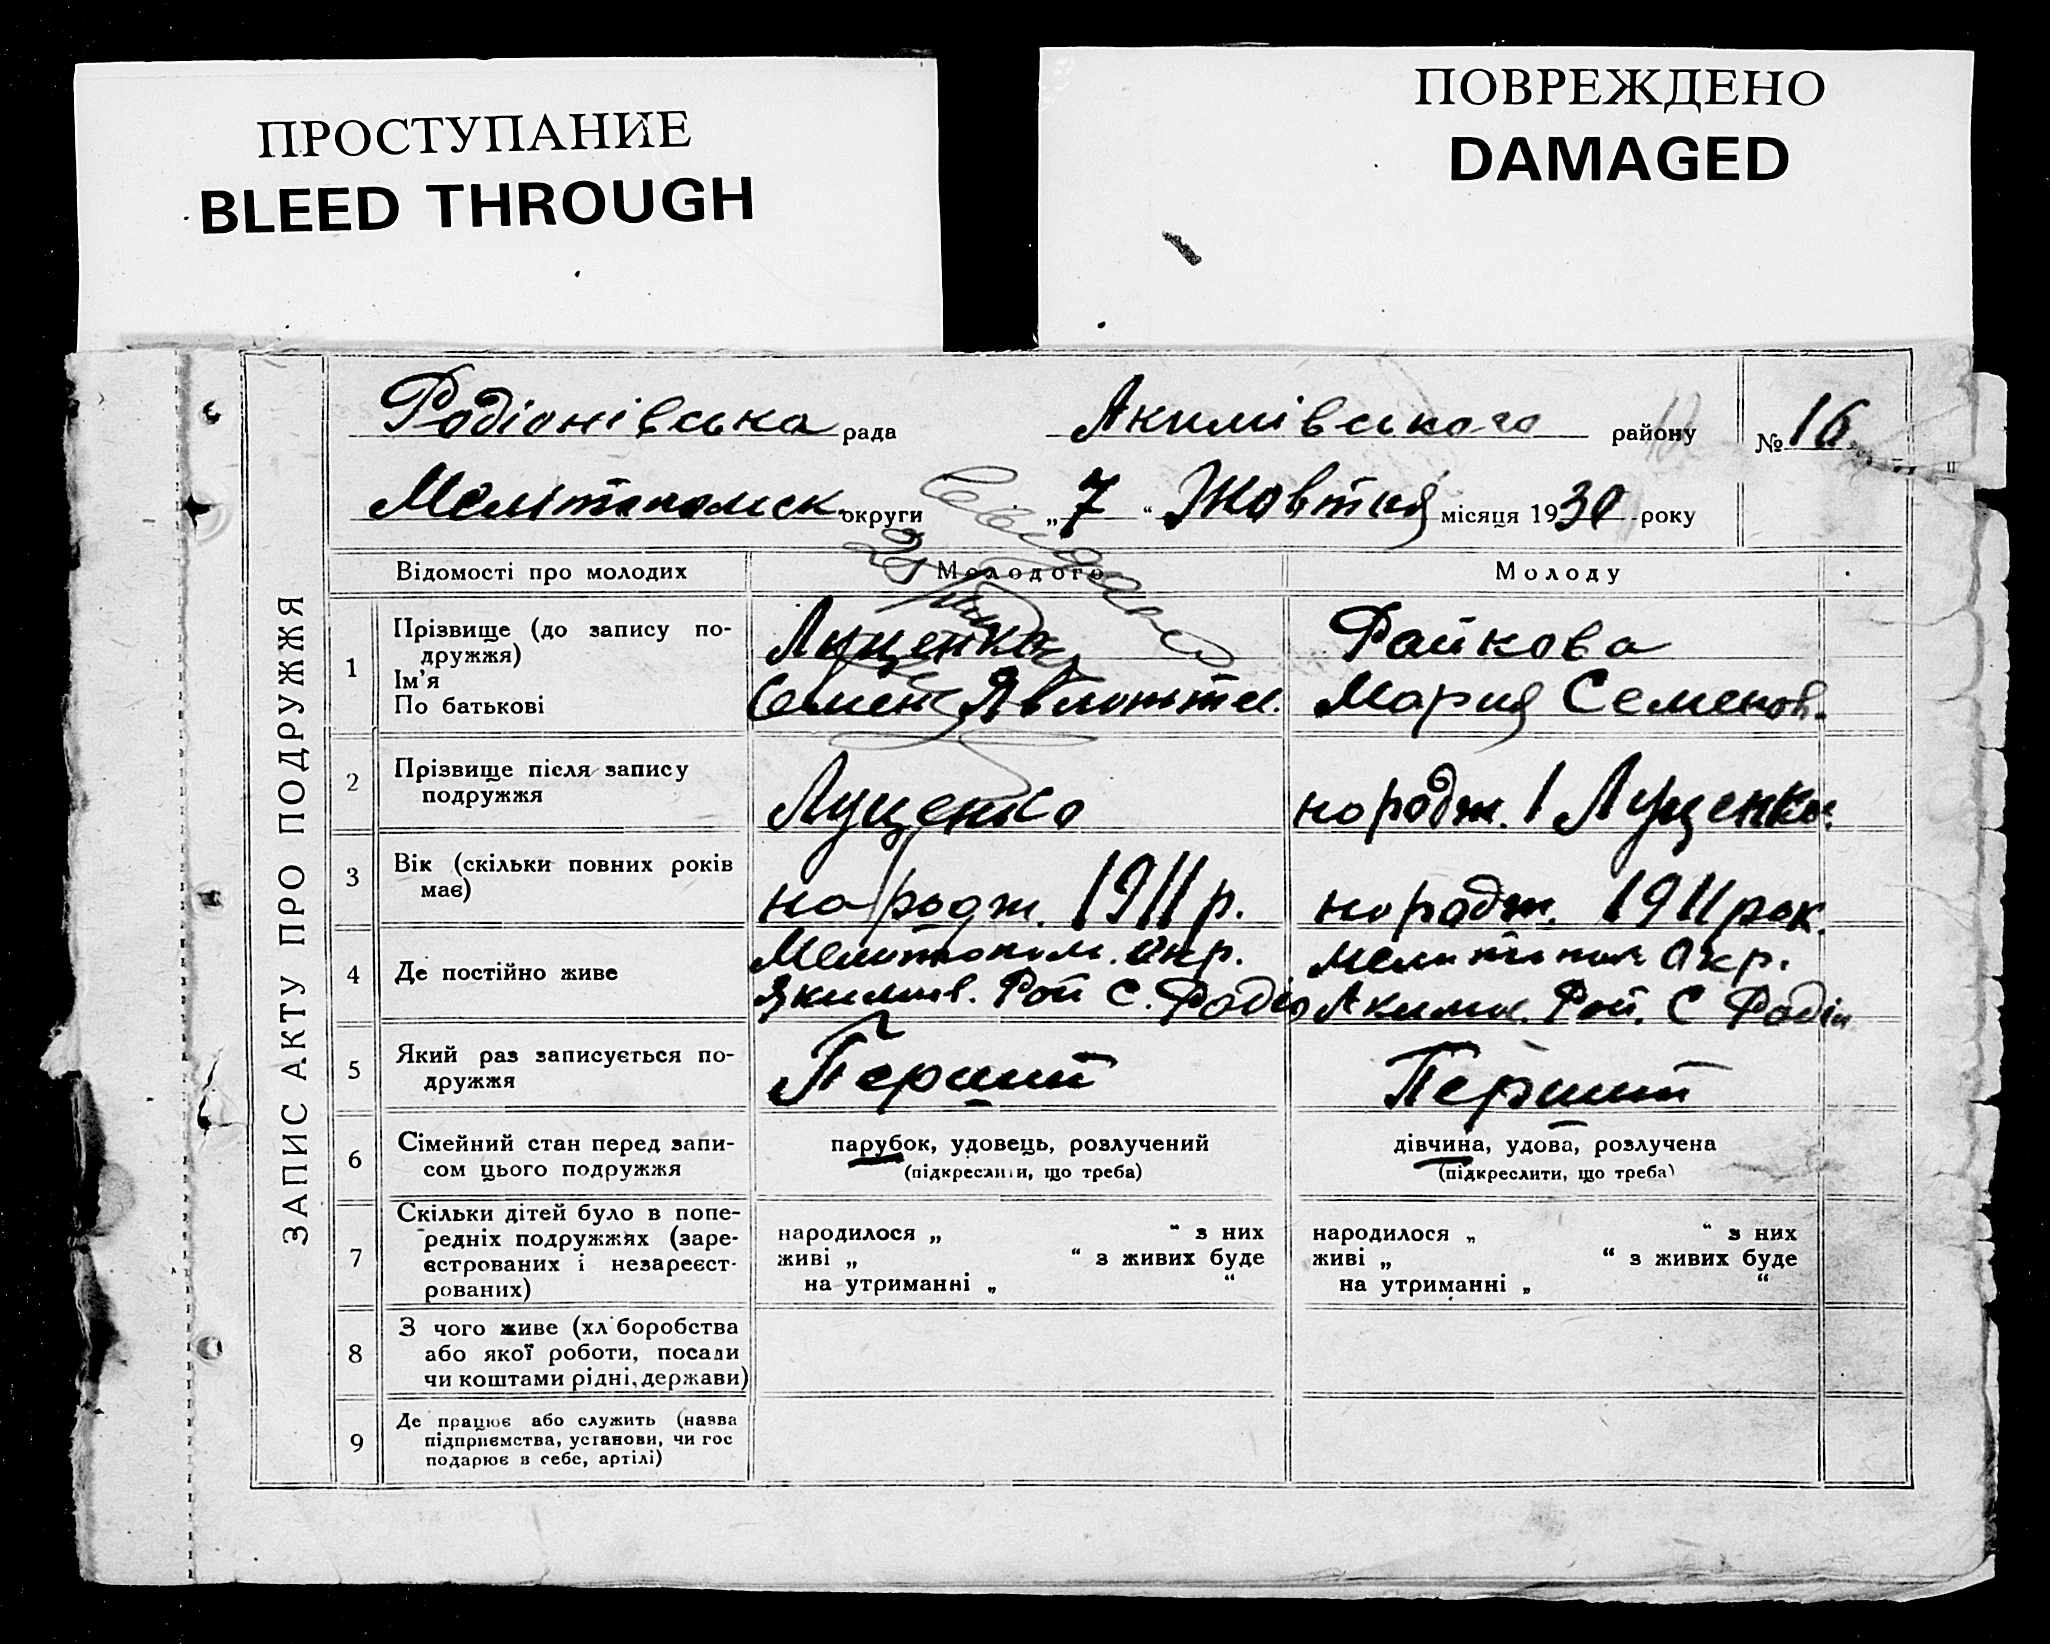 ПРОСТУПАНИЕ
BLEED THROUGH
ПОВРЕЖДЕНО
DAMAGED
ЗАПИС АКТУ ПРО ПОДРУЖЖЯ
Родіонівська рада Акимівського району № 16
Мелітопольск округи „7“ Жовтня місяця 1930 року
Відомості про молодих Молодого Молоду
1 Прізвище (до запису по-
дружжя)
Ім'я
По батькові
Луценко
Семен
Райкова
Мария Семенов.
2 Прізвище після запису
подружжя
Луценко
народж. 1 Луценко
3 Вік (скільки повних років
має)
народж. 1911 р.
народж. 1911 рок.
4 Де постійно живе
Мелитополь. окр.
Якимів. Рай С. Родіо
Мелитополь окр.
Акимів. Рай. С Родіон
5 Який раз записується по-
дружжя
Перший
Перший
6 Сімейний стан перед запи-
сом цього подружжя
парубок, удовець, розлучений
(підкреслити, що треба)
дівчина, удова, розлучена
(підкреслити, що треба)
7 Скільки дітей було в попе-
редніх подружжях (заре-
єстрованих і незареєст-
рованих)
народилося „ “ з них
живі „ “ з живих буде
на утриманні „ “
народилося „ “ з них
живі „ “ з живих буде
на утриманні „ “
8 З чого живе (хл боробства
або якої роботи, посади
чи коштами рідні, держави)
9 Де працює або служить (назва
підприємства, установи, чи гос
подарює в себе, артілі)